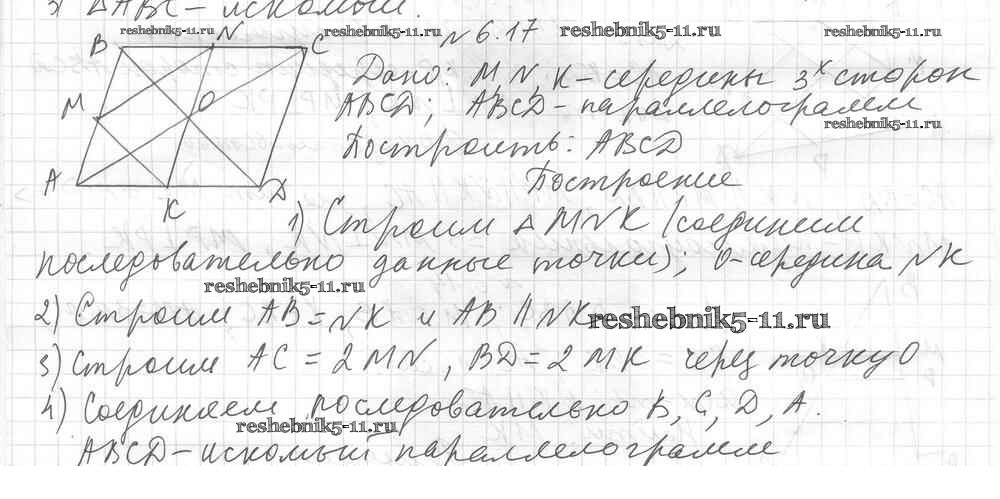 3) △ABC - искомый.
reshebnik5-11.ru reshebnik5-11.ru reshebnik5-11.ru
B N C
№ 6.17
Дано: M, N, K - середины 3х сторон
M O
ABCD; ABCD - параллелограмм
reshebnik5-11.ru
Построить: ABCD
A K D
Построение
1) Строим △ MNK (соединим
последовательно данные точки); O - середина NK
reshebnik5-11.ru
2) Строим AB = NK и AB || NK
reshebnik5-11.ru
3) Строим AC = 2MN, BD = 2MK - через точку O
4) Соединяем последовательно B, C, D, A.
reshebnik5-11.ru
ABCD - искомый параллелограмм